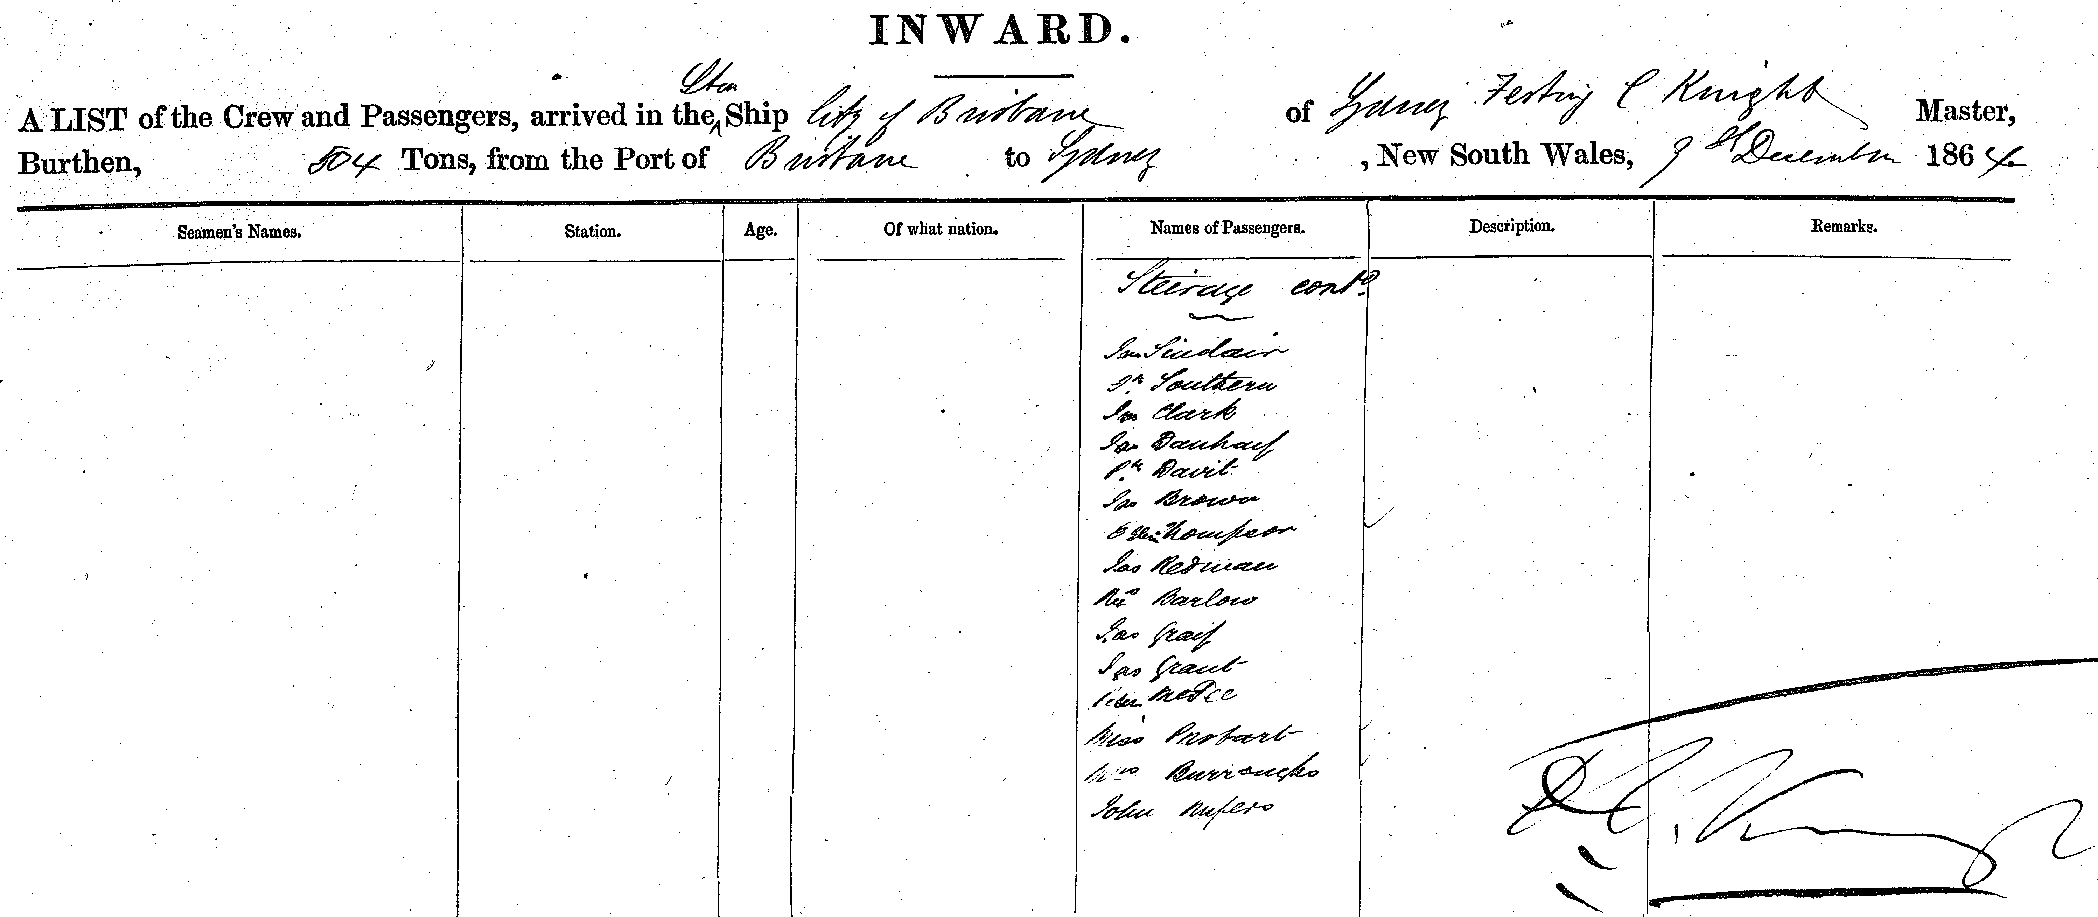 INWARD.
Stm
A LIST of the Crew and Passengers, arrived in the Ship City of Brisbane of Sydney Festing C Knight Master,
Burthen, 504 Tons, from the Port of Brisbane to Sydney, New South Wales, 9th December 1864
Seamen's Names. Station. Age. Of what nation. Names of Passengers. Description. Remarks.
Steirage contd.
Sinclair
Southern
Clark
Davit
Jas Brown
Thompson
Jas Redman
Barlow
Jas Graif
Jas Grant
Peter
Miss Probart
Mrs Burroughs
John